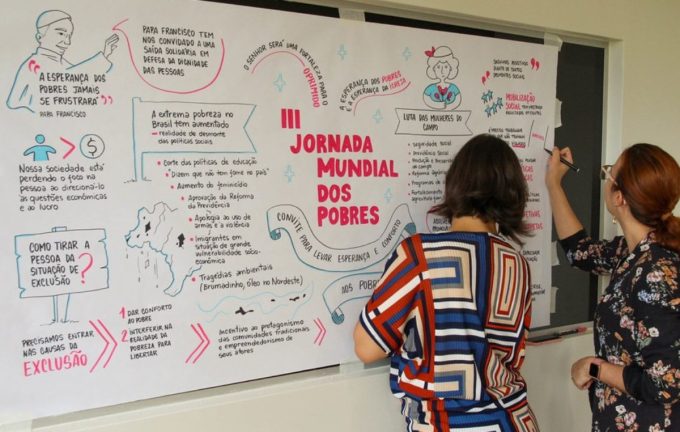 PAPA FRANCISCO TEM
NOS CONVIDADO A UMA
SAÍDA SOLIDÁRIA EM
DEFESA DA DIGNIDADE
DAS PESSOAS
"A ESPERANÇA DOS
POBRES JAMAIS
SE FRUSTRARÁ"
PAPA FRANCISCO
A extrema pobreza no
Brasil tem aumentado
— realidade de desmonte
das políticas sociais
Nossa sociedade está
perdendo o foco na
pessoa ao direcioná-lo
às questões econômicas
e ao lucro
• Corte das políticas de educação
• "Dizem que não tem fome no país"
• Aumento do feminicídio
• Aprovação da Reforma
da Previdência
• Apologia ao uso de
armas e a violência
• Imigrantes em
situação de grande
vulnerabilidade sócio-
econômica
• Tragédias ambientais
(Brumadinho, óleo no Nordeste)
COMO TIRAR A
PESSOA DA
SITUAÇÃO DE
EXCLUSÃO ?
PRECISAMOS ENTRAR
NAS CAUSAS DA
EXCLUSÃO
1 DAR CONFORTO
AO POBRE
2 INTERFERIR NA
REALIDADE DA
POBREZA PARA
LIBERTAR
Incentivo ao protagonismo
das comunidades tradicionais
e empreendedorismo de
seus atores
O SENHOR SERÁ UMA FORTALEZA PARA O
OPRIMIDO
III
JORNADA
MUNDIAL
DOS
POBRES
CONVITE PARA LEVAR ESPERANÇA E CONFORTO
AOS POBRES
A ESPERANÇA DOS POBRES
É A ESPERANÇA DA IGREJA
LUTA DAS MULHERES DO
CAMPO
• Seguridade social
• Previdência Social
• Reforma Agrária
MOBILIZAÇÃO
SOCIAL